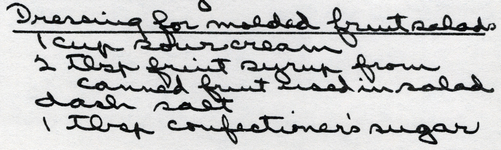 Dressing for molded fruit salads
1 cup sour cream
2 tbsp fruit syrup from
canned fruit used in salad
dash salt
1 tbsp confectioner's sugar